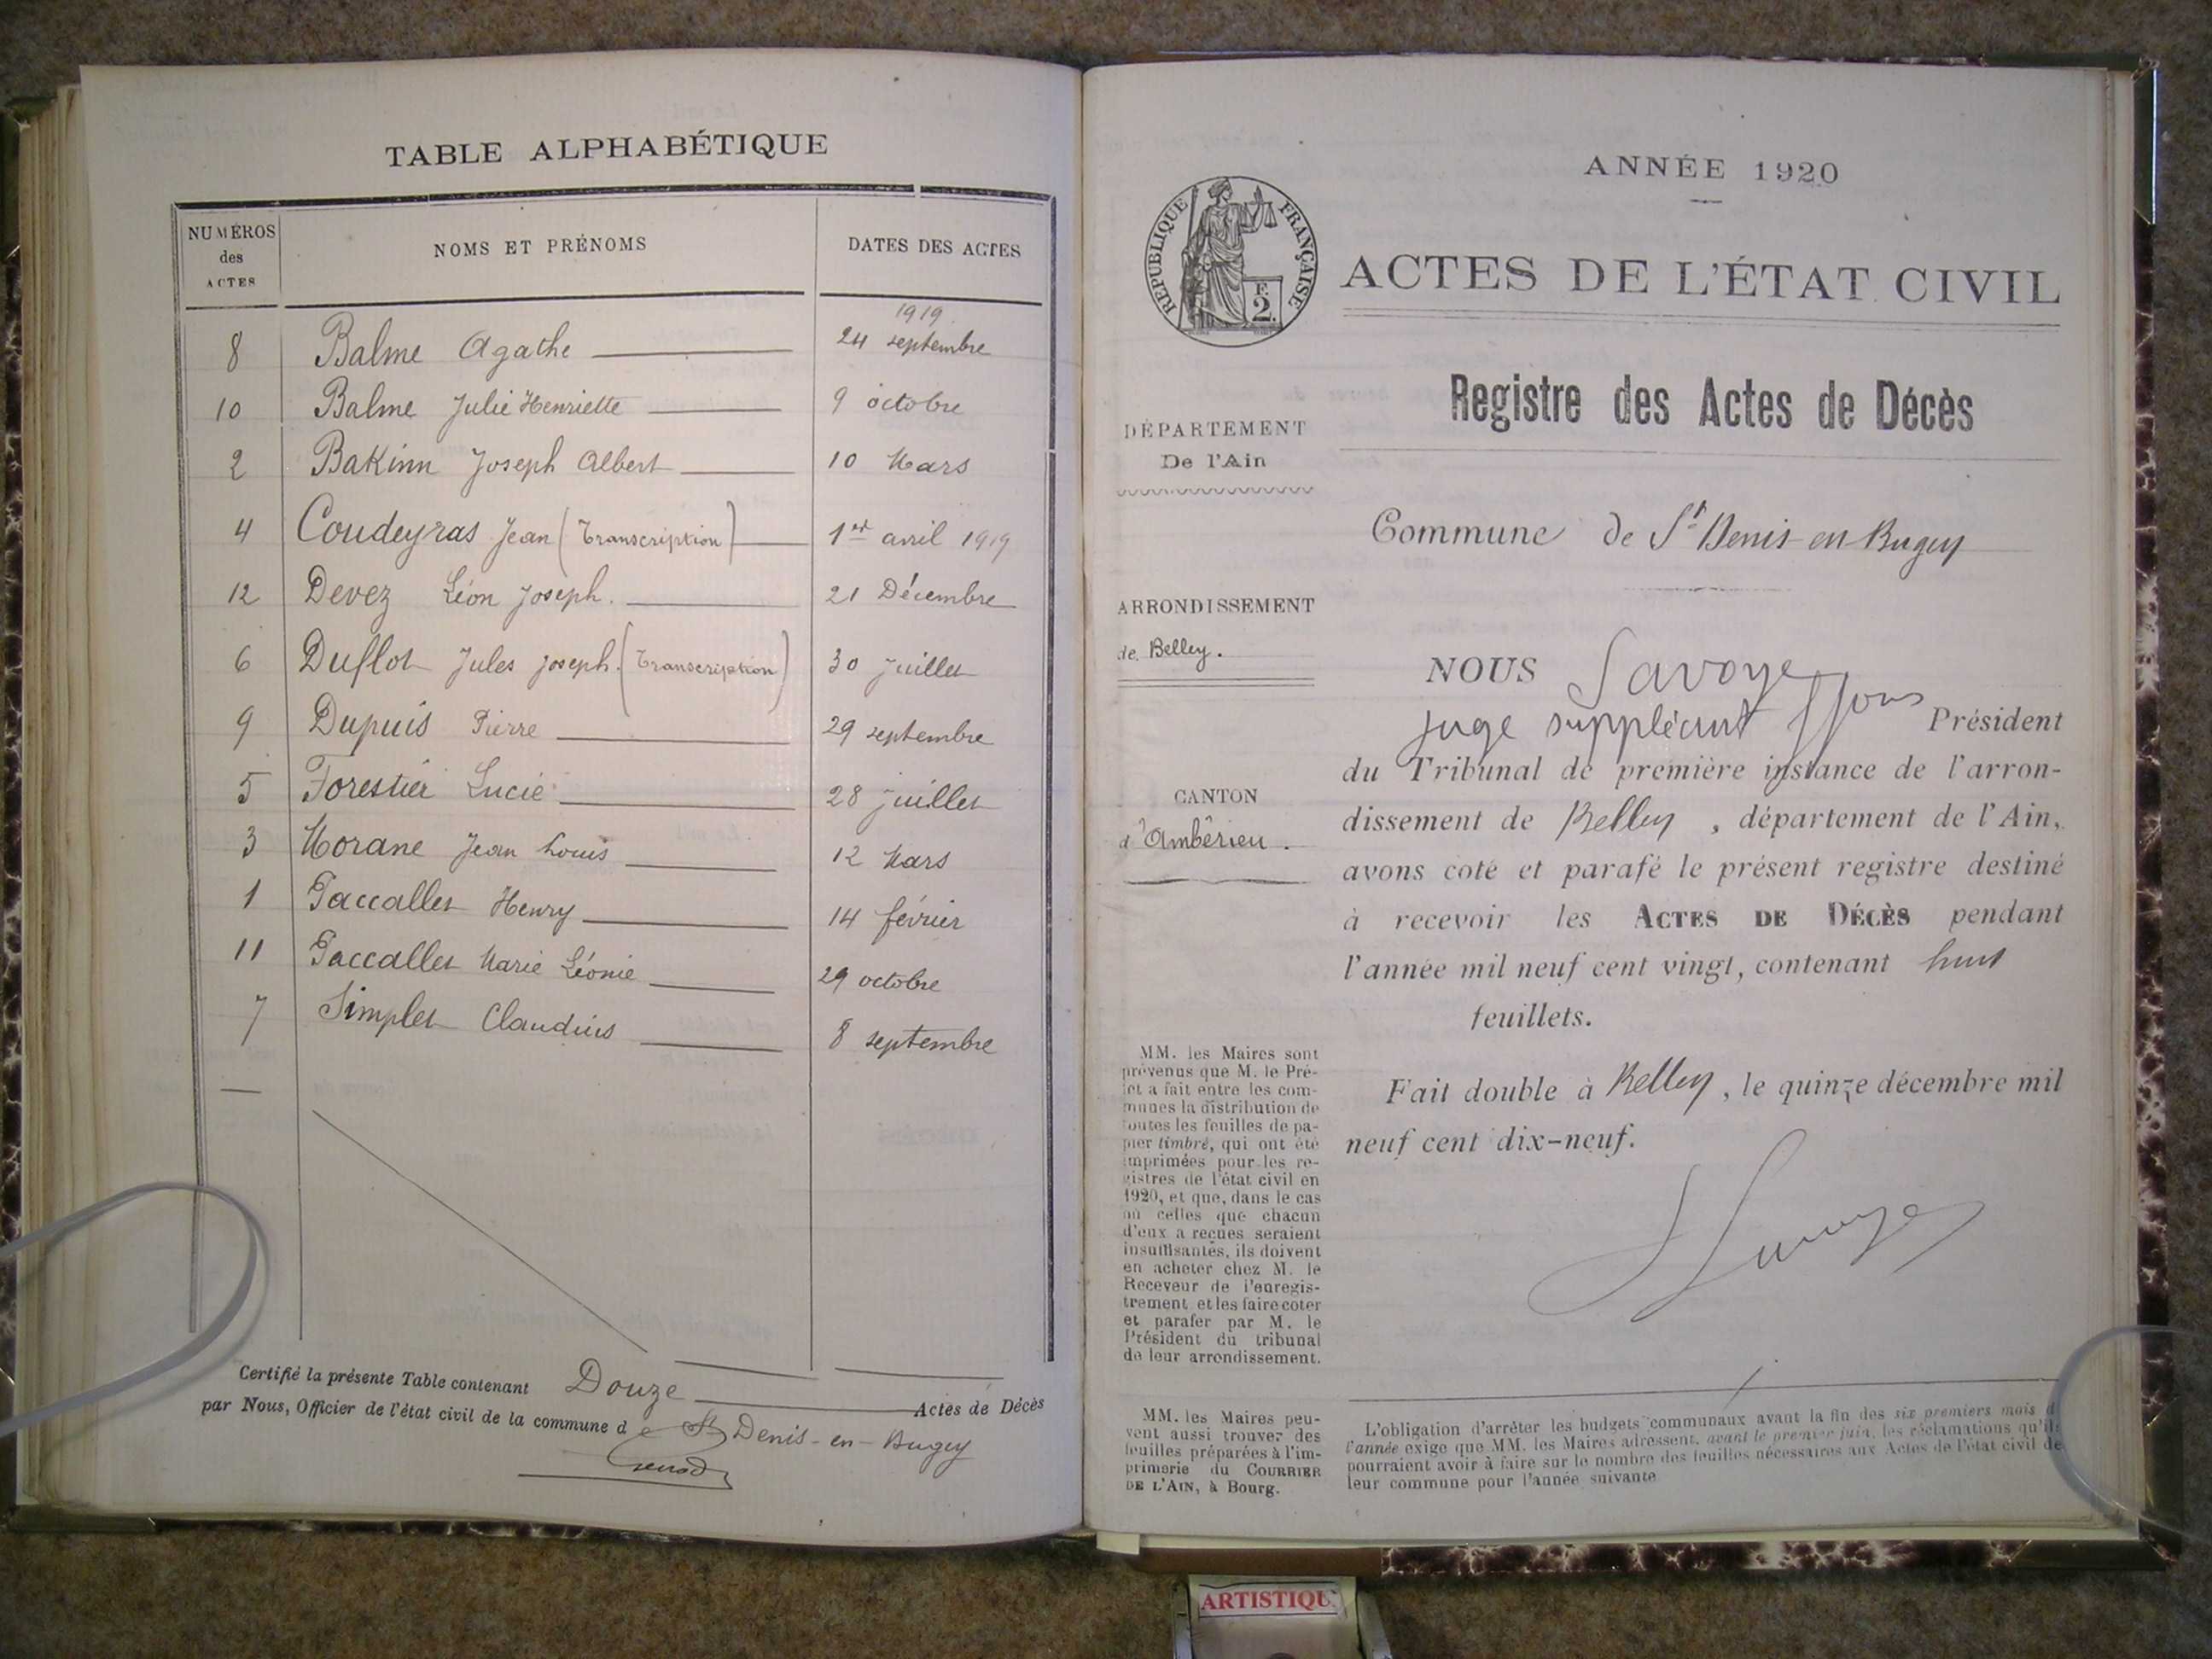 TABLE ALPHABÉTIQUE
NUMÉROS des ACTES
NOMS ET PRÉNOMS
DATES DES ACTES
1919
8 Balme Agathe 24 septembre
10 Balme Julie Henriette 9 octobre
2 Bakinn Joseph Albert 10 Mars
4 Coudeyras Jean (Transcription) 1er avril 1919
12 Devez Léon Joseph. 21 Décembre
6 Duflot Jules Joseph. (Transcription) 30 juillet
9 Dupuis Pierre 29 septembre
5 Forestier Lucie 28 juillet
3 Morane Jean Louis 12 Mars
1 Paccallet Henry 14 février
11 Paccallet Marie Léonie 29 octobre
7 Simplet Claudius 8 septembre
Certifié la présente Table contenant Douze Actes de Décès
par Nous, Officier de l'état civil de la commune de St Denis-en-Bugey
ANNÉE 1920
RÉPUBLIQUE FRANÇAISE
F. 2.
ACTES DE L'ÉTAT CIVIL
Registre des Actes de Décès
DÉPARTEMENT
De l'Ain
Commune de St Denis-en-Bugey
ARRONDISSEMENT
de Belley.
CANTON
d'Ambérieu.
NOUS Savoye
juge suppléant ffons Président
du Tribunal de première instance de l'arron-
dissement de Belley, département de l'Ain,
avons coté et parafé le présent registre destiné
à recevoir les ACTES DE DÉCÈS pendant
l'année mil neuf cent vingt, contenant huit
feuillets.
Fait double à Belley, le quinze décembre mil
neuf cent dix-neuf.
Savoye
MM. les Maires sont
prévenus que M. le Pré-
fet a fait entre les com-
munes la distribution de
toutes les feuilles de pa-
pier timbré, qui ont été
imprimées pour les re-
gistres de l'état civil en
1920, et que, dans le cas
où celles que chacun
d'eux a reçues seraient
insuffisantes, ils doivent
en acheter chez M. le
Receveur de l'enregis-
trement et les faire coter
et parafer par M. le
Président du tribunal
de leur arrondissement.
MM. les Maires peu-
vent aussi trouver des
feuilles préparées à l'im-
primerie du COURRIER
DE L'AIN, à Bourg.
L'obligation d'arrêter les budgets communaux avant la fin des six premiers mois d
l'année exige que MM. les Maires adressent, avant le premier juin, les réclamations qu'ils
pourraient avoir à faire sur le nombre des feuilles nécessaires aux Actes de l'état civil de
leur commune pour l'année suivante
ARTISTIQU